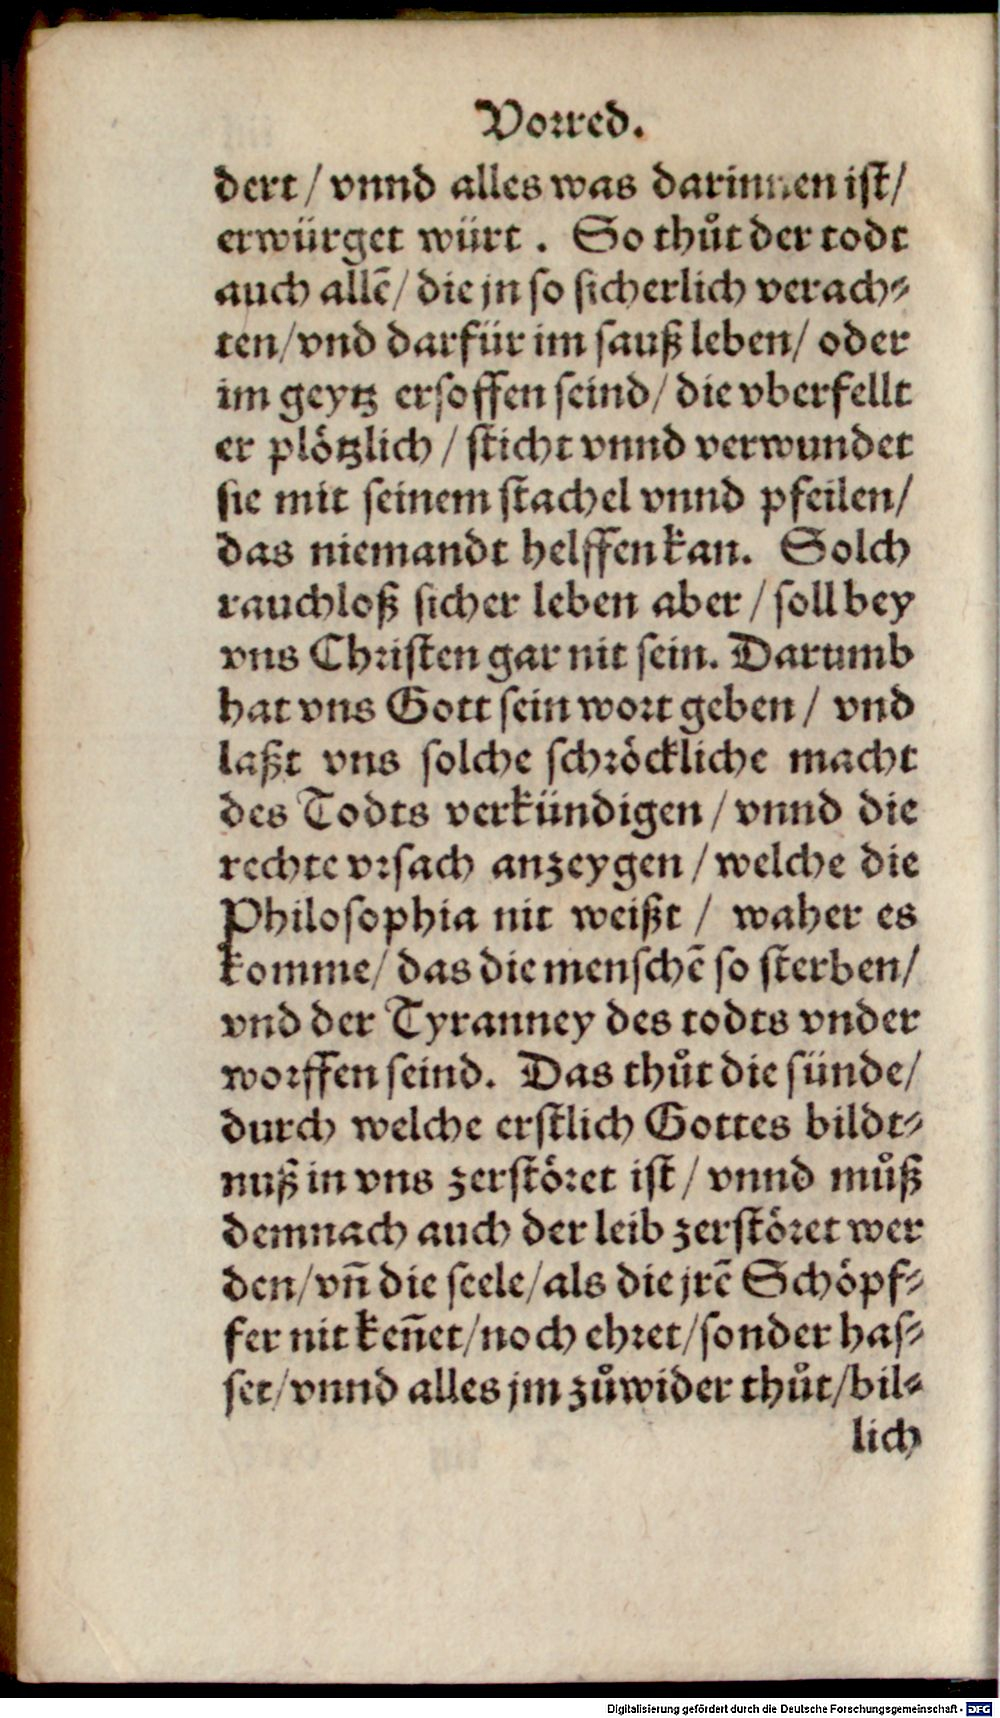 Vorred.
dert / vnnd alles was darinnen ist /
erwürget würt . So thůt der todt
auch allē / die jn so sicherlich verach⸗
ten / vnd darfür im sauß leben / oder
im geytz ersoffen seind / die vberfellt
er plötzlich / sticht vnnd verwundet
sie mit seinem stachel vnnd pfeilen /
das niemandt helffen kan. Solch
rauchloß sicher leben aber / soll bey
vns Christen gar nit sein. Darumb
hat vns Gott sein wort geben / vnd
laßt vns solche schröckliche macht
des Todts verkündigen / vnnd die
rechte vrsach anzeygen / welche die
Philosophia nit weißt / waher es
komme / das die menschē so sterben /
vnd der Tyranney des todts vnder
worffen seind. Das thůt die sünde /
durch welche erstlich Gottes bildt⸗
nuß in vns zerstöret ist / vnnd můß
demnach auch der leib zerstöret wer
den / vn̄ die seele / als die jrē Schöpf⸗
fer nit ken̄et / noch ehret / sonder has⸗
set / vnnd alles jm zůwider thůt / bil⸗
lich
Digitalisierung gefördert durch die Deutsche Forschungsgemeinschaft - DFG